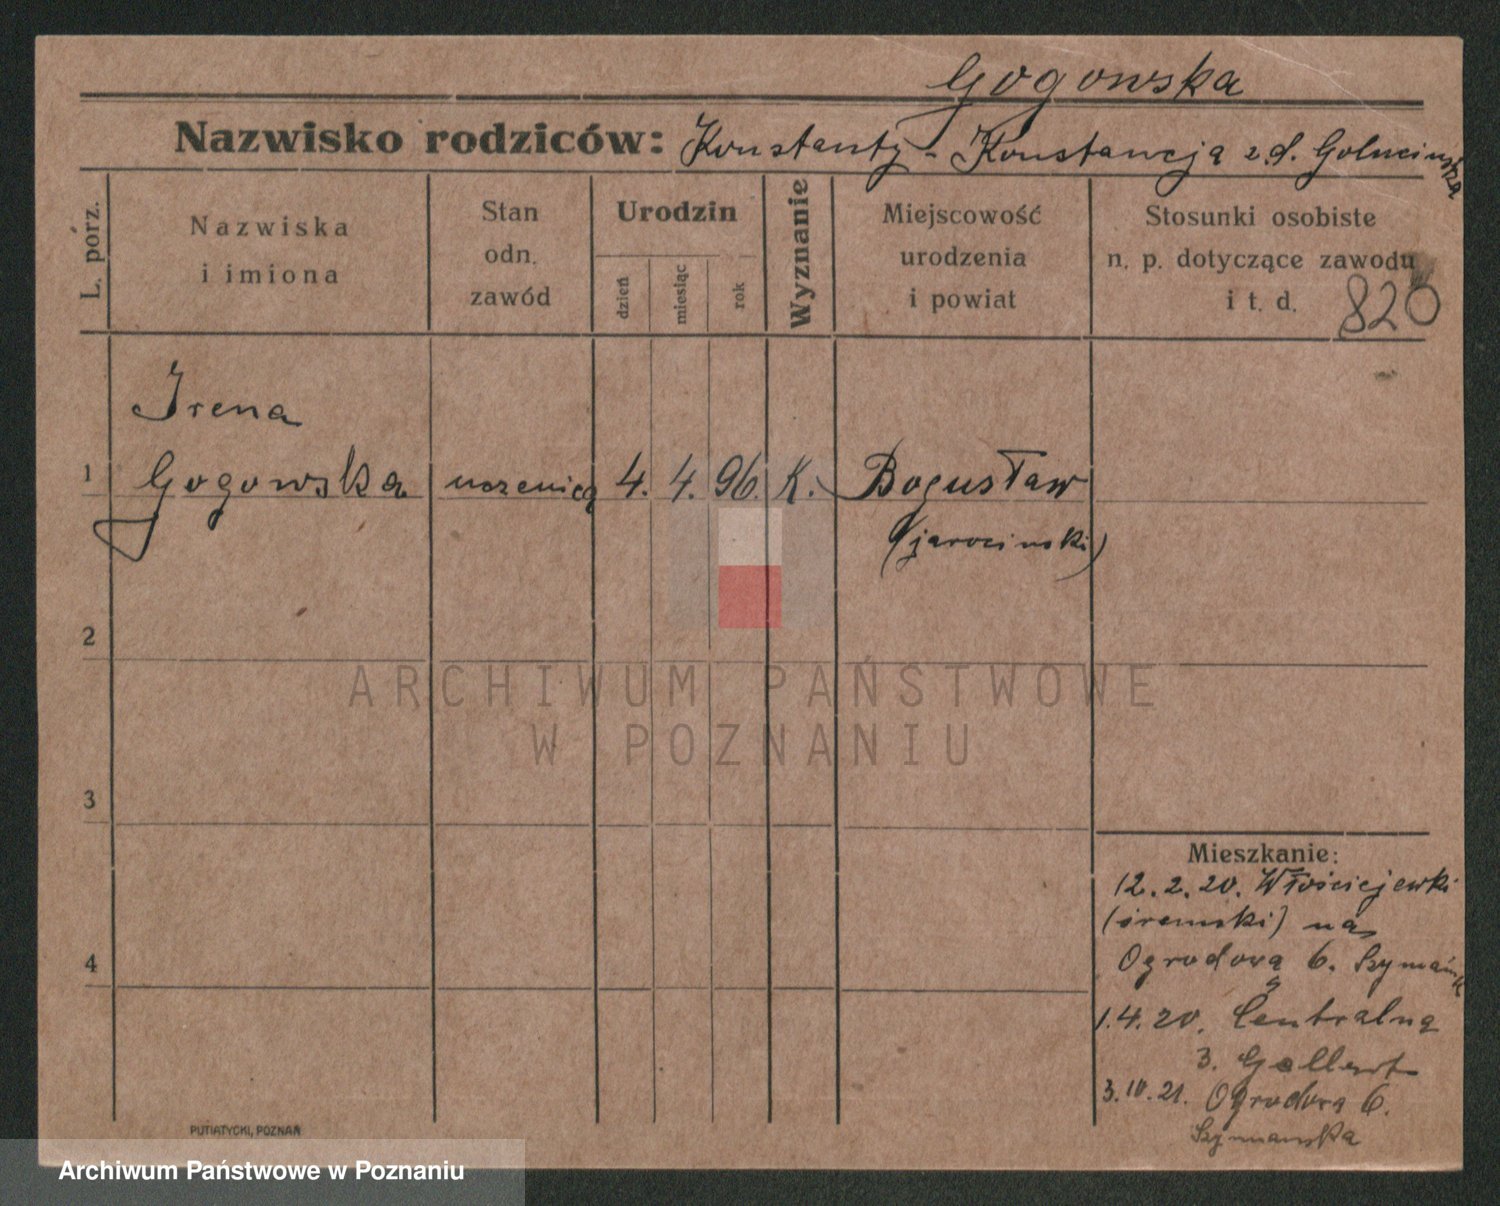 Gogowska
Nazwisko rodziców: Konstanty - Konstancja z.d.
L. pórz.
Nazwiska
i imiona
Stan
odn.
zawód
Urodzin
dzień
miesiąc
rok
Wyznanie
Miejscowość
urodzenia
i powiat
Stosunki osobiste
n. p. dotyczące zawodu
i t. d. 820
Irena
1 Gogowska uczenica 4. 4. 96. K. Bogusław
(jarocinski)
2
ARCHIWUM PAŃSTWOWE
W POZNANIU
3
Mieszkanie:
12. 2. 20. Włościejewki
(śremski) na
4
Ogrodová 6. Szymańsk
1.4.20. Centralna
3. Gellert
3.10.21. Ogrodova 6.
Szymanska
PUTIATYCKI, POZNAŃ
Archiwum Państwowe w Poznaniu